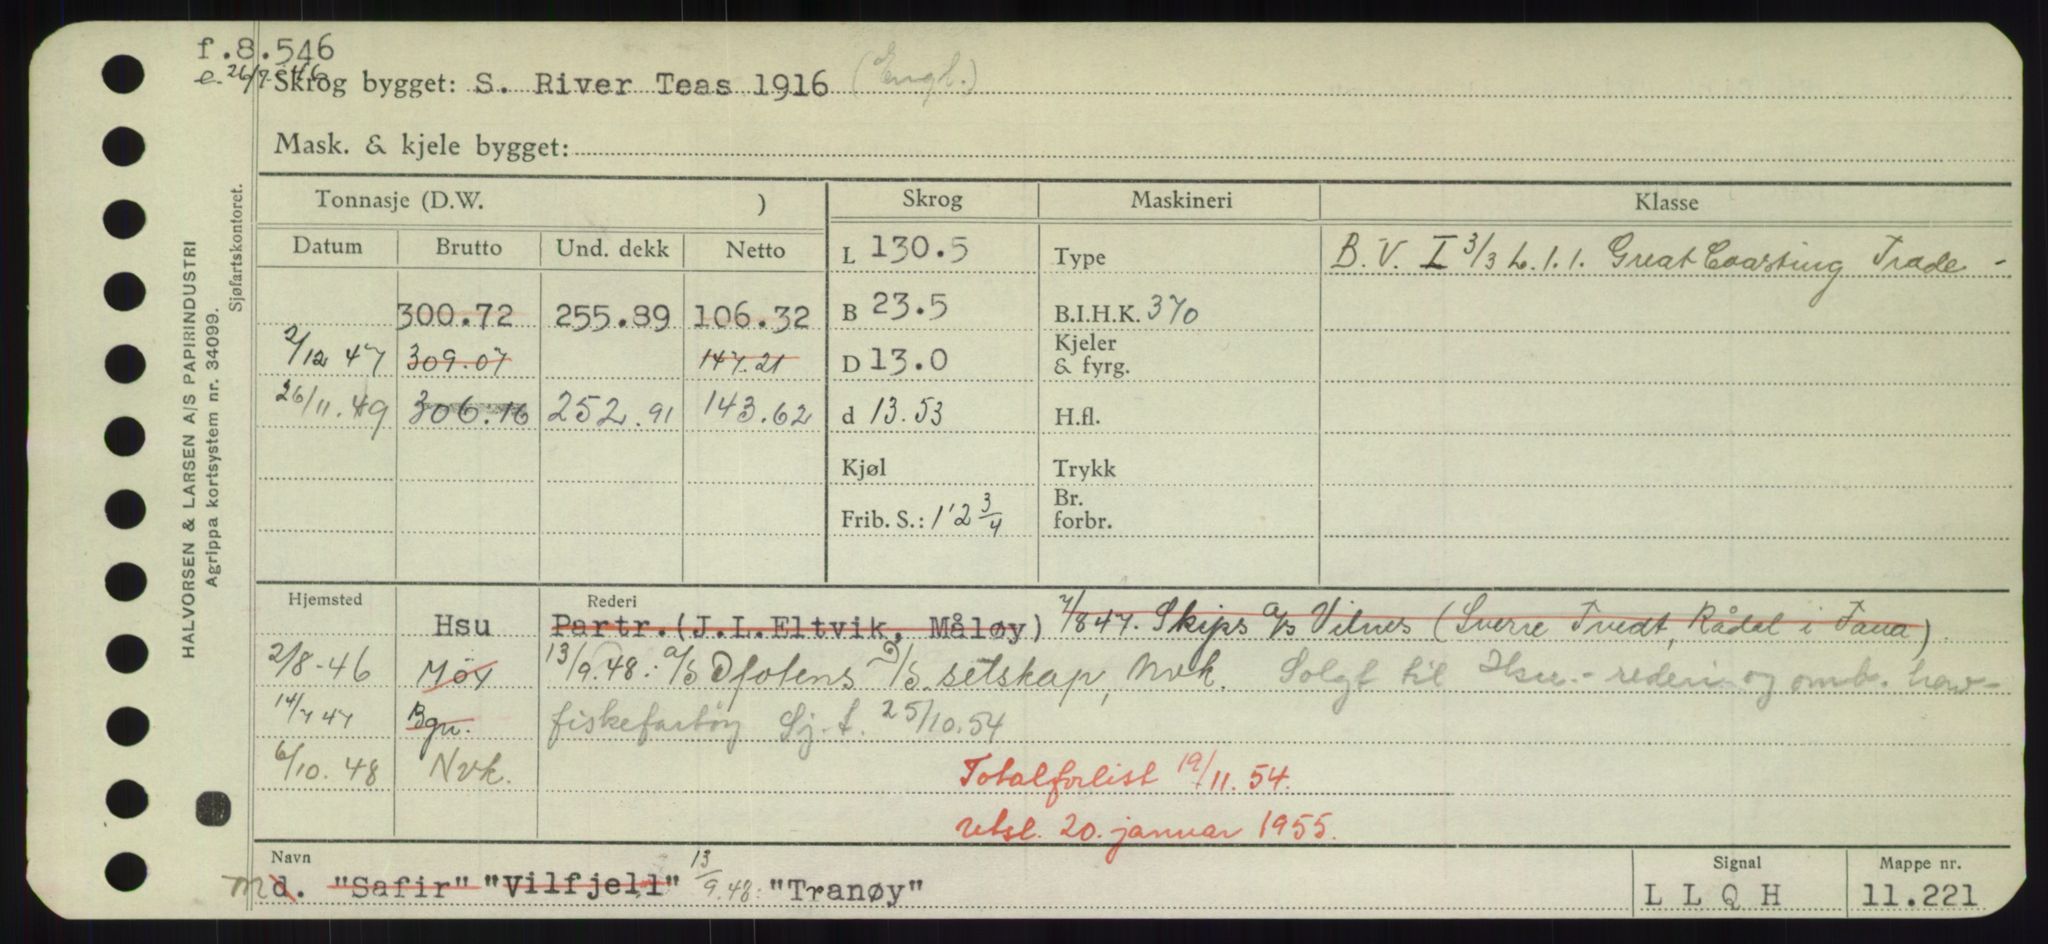 f.8.546
e. 26/7-46
Skrog bygget: S. River Teas 1916 (Engl.)
Mask. & kjele bygget:
HALVORSEN & LARSEN A/S PAPIRINDUSTRI
Agrippa kortsystem nr. 34099.
Sjøfartskontoret.
Tonnasje (D.W. ) Skrog Maskineri Klasse
Datum Brutto Und. dekk Netto L 130.5 Type B. V. I 3/3 L. 1. 1. Great Coasting Trade -
300.72 255.89 106.32 B 23.5 B.I.H.K. 370
2/12 47 309.07 147.21 D 13.0 Kjeler & fyrg.
26/11.49 306.16 252.91 143.62 d 13.53 H.fl.
Kjøl Trykk
Frib. S.: 1'2 3/4 Br. forbr.
Hjemsted Rederi
Hsu Partr.(J.L.Eltvik, Måløy) 7/8 47. Skips a/s Vilnes (Sverre Tvedt, Rådal i Fana)
2/8-46 Möy 13/9.48: a/s Ofotens D/S. selskap, Nvk. Solgt til rederi og omb. hav-
14/7 47 Bgn. fiskefartöy Sj. t. 25/10.54
6/10.48 Nvk. Totalforlist 19/11.54.
utsl. 20. januar 1955.
Navn Signal Mappe nr.
md. "Safir" "Vilfjell" 13/9.48: "Tranøy" L L Q H 11.221